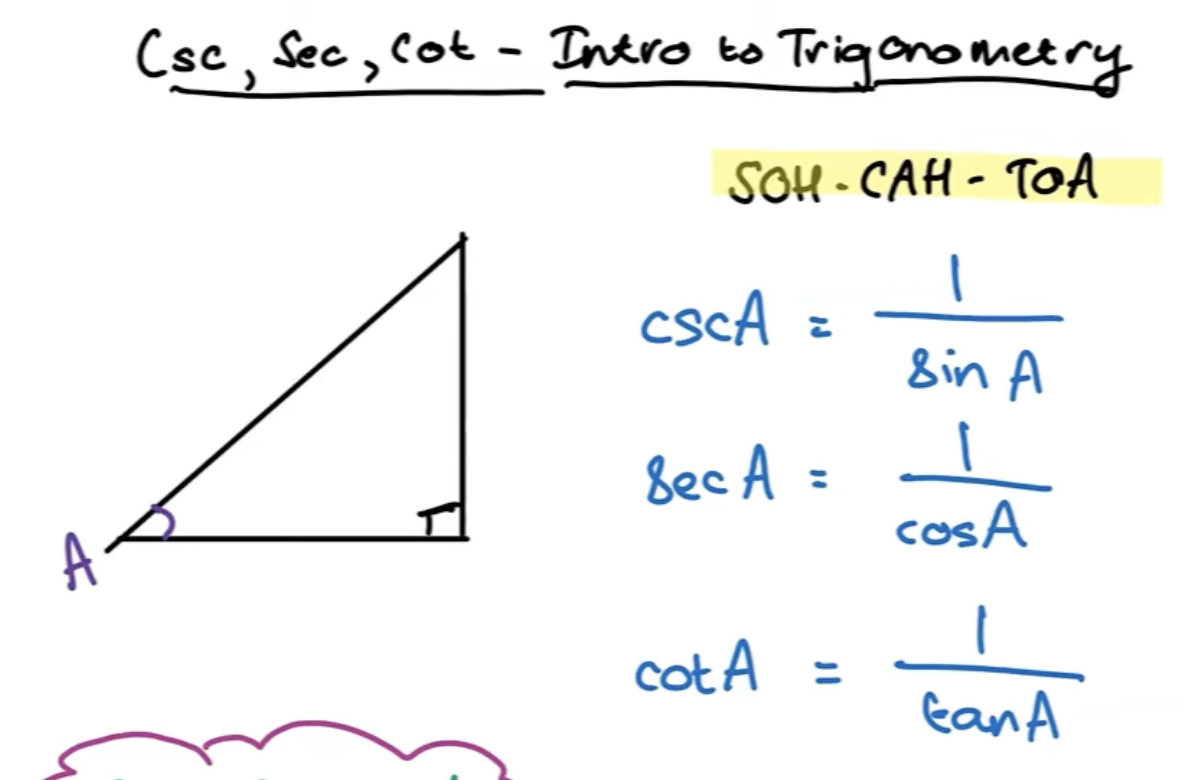 Csc, Sec, Cot - Intro to Trigonometry
SOH - CAH - TOA
cscA = 1
sin A
sec A = 1
cosA
A
cotA = 1
tanA